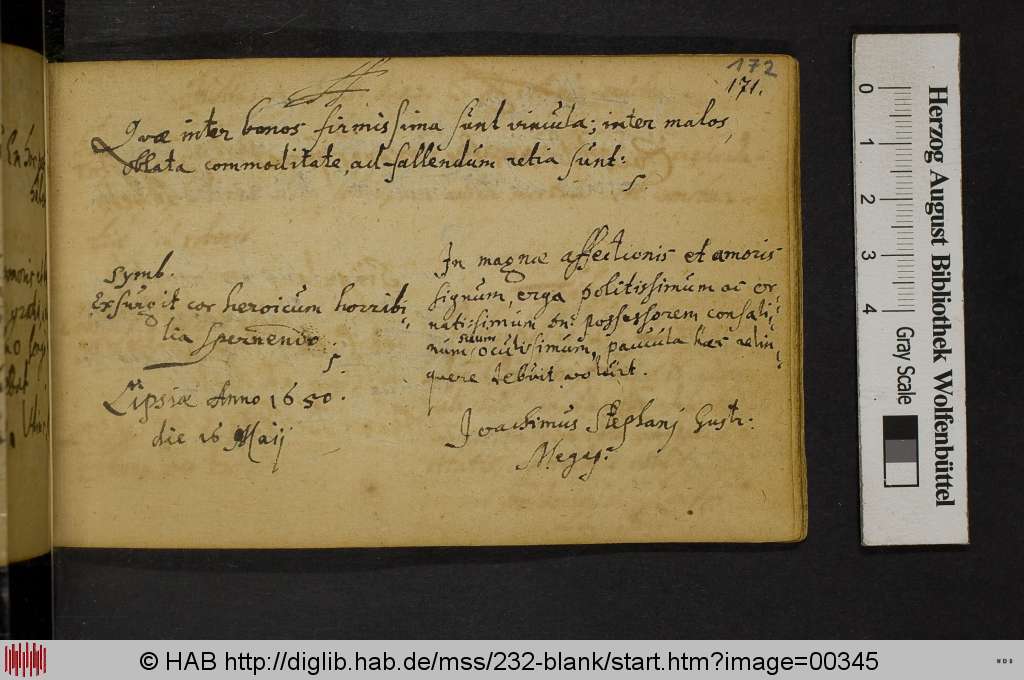 172
171.
Quæ inter bonos firmissima sunt vincula; inter malos,
oblata commoditate, ad fallendum retia sunt:
Symb.
Exsurgit cor heroicum horribi-
lia spernendo.
Lipsiæ Anno 1650.
die 16 Maij
In magnæ affectionis et amoris
signum, erga politissimum ac or-
natissimum Dn: possessorem consali-
num suum oculissimum, paucula hæc relin-
quere debuit voluit.
Joachimus Stephanj Gustr:
Megap:
Herzog August Bibliothek Wolfenbüttel
0 1 2 3 4 Gray Scale
© HAB http://diglib.hab.de/mss/232-blank/start.htm?image=00345